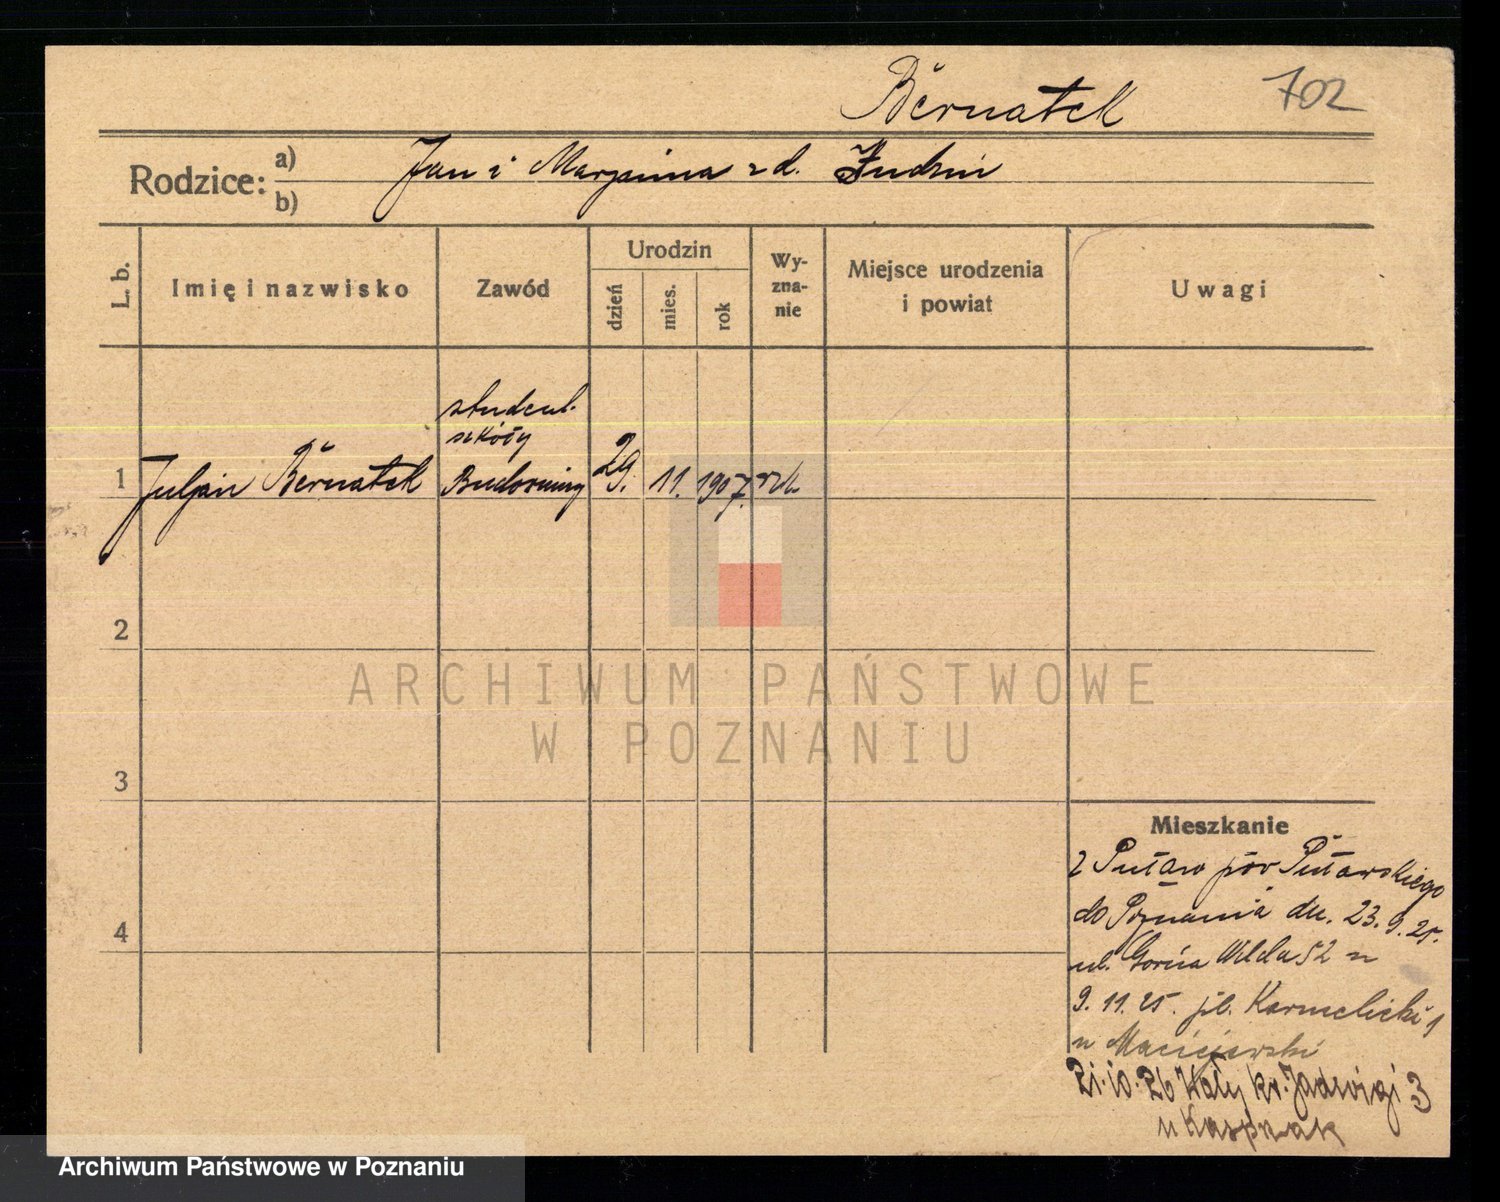 Bernatek 702
Rodzice: a) Jan i Marjanna z d.
b)
L. b.
Imię i nazwisko
Zawód
Urodzin
dzień
mies.
rok
Wy-
zna-
nie
Miejsce urodzenia
i powiat
Uwagi
student.
szkoły
1 Juljan Bernatek Budowniny 29. 11. 1907. rzk
2
ARCHIWUM PAŃSTWOWE
W POZNANIU
3
Mieszkanie
z Puław pow Puławskiego
4
do Poznania dn. 23.9.25.
ul. Górna Wilda 52 n
9.11.25. pl. Karmelicki 1
n Maciejewski
21.10.26 Wały kr. Jadwigi 3
u Kasprzak
Archiwum Państwowe w Poznaniu